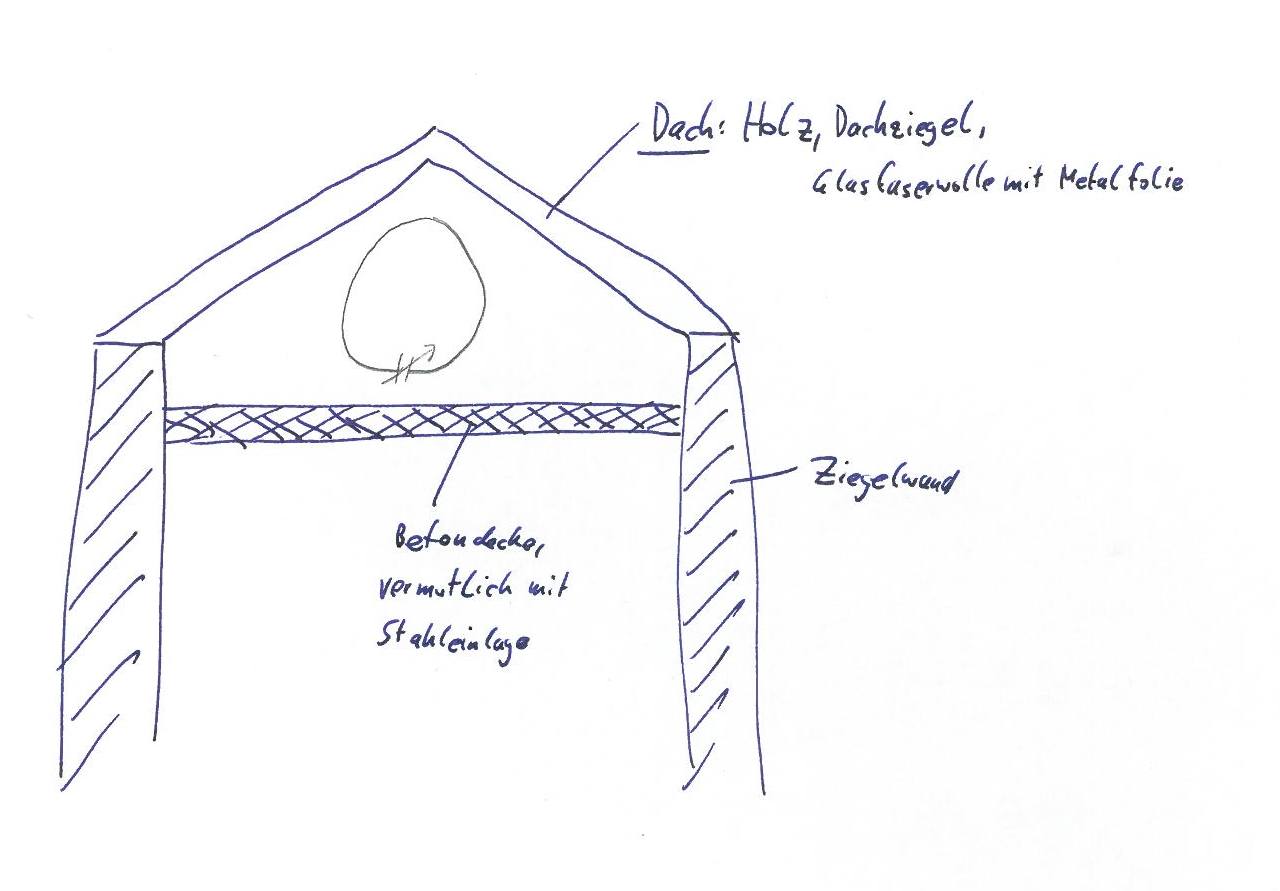 Dach: Holz, Dachziegel,
Glasfaserwolle mit Metalfolie
Ziegelwand
Betondecke,
vermutlich mit
Stahleinlage